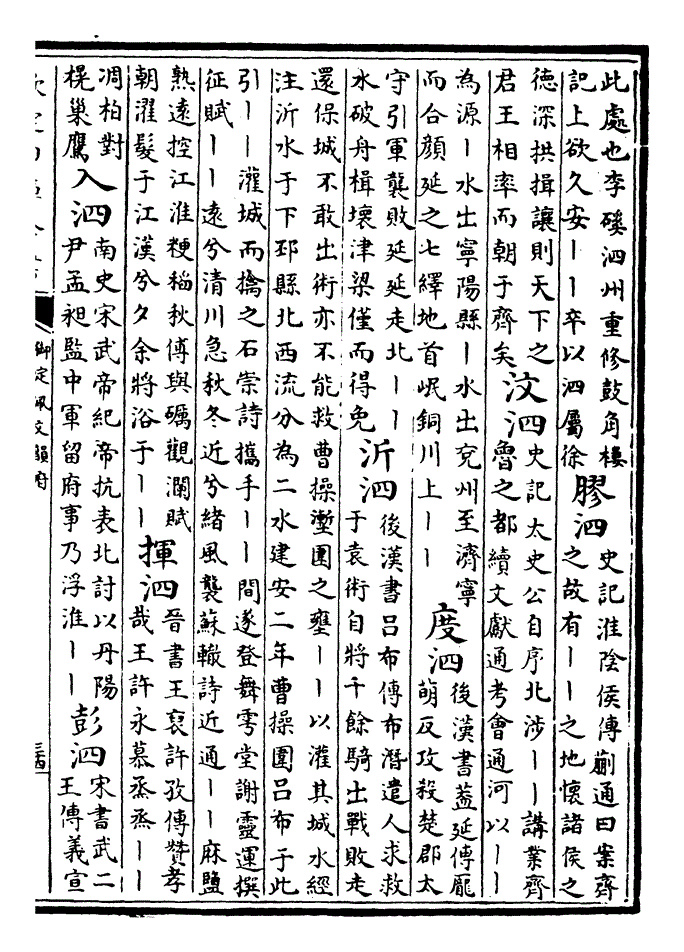 此處也李磎泗州重修鼓角樓
記上欲久安丨丨卒以泗屬徐
膠泗
史記淮陰侯傳蒯通曰案齊
之故有丨丨之地懷諸侯之
德深拱揖讓則天下之
君王相率而朝于齊矣
汶泗
史記太史公自序北涉丨丨講業齊
魯之都續文獻通考會通河以丨丨
為源丨水出寧陽縣丨水出兗州至濟寧
而合顔延之七繹地首岷銅川上丨丨
度泗
後漢書蓋延傳龎
萌反攻殺楚郡太
守引軍襲敗延延走北丨丨
水破舟楫壞津梁僅而得免
沂泗
後漢書吕布傳布潛遣人求救
于袁術自將千餘騎出戰敗走
還保城不敢出術亦不能救曹操壍圍之壅丨丨以灌其城水經
注沂水于下邳縣北西流分為二水建安二年曹操圍吕布于此
引丨丨灌城而擒之石崇詩攜手丨丨間遂登舞雩堂謝靈運撰
征賦丨丨遠兮清川急秋冬近兮緒風襲蘇轍詩近通丨丨麻鹽
熟遠控江淮粳稻秋傅與礪觀瀾賦
朝濯髮于江漢兮夕余將浴于丨丨
揮泗
晉書王裒許孜傳贊孝
哉王許永慕烝烝丨丨
凋柏對
榥巢鷹
入泗
南史宋武帝紀帝抗表北討以丹陽
尹孟昶監中軍留府事乃浮淮丨丨
彭泗
宋書武二
王傳義宣
御定佩文韻府